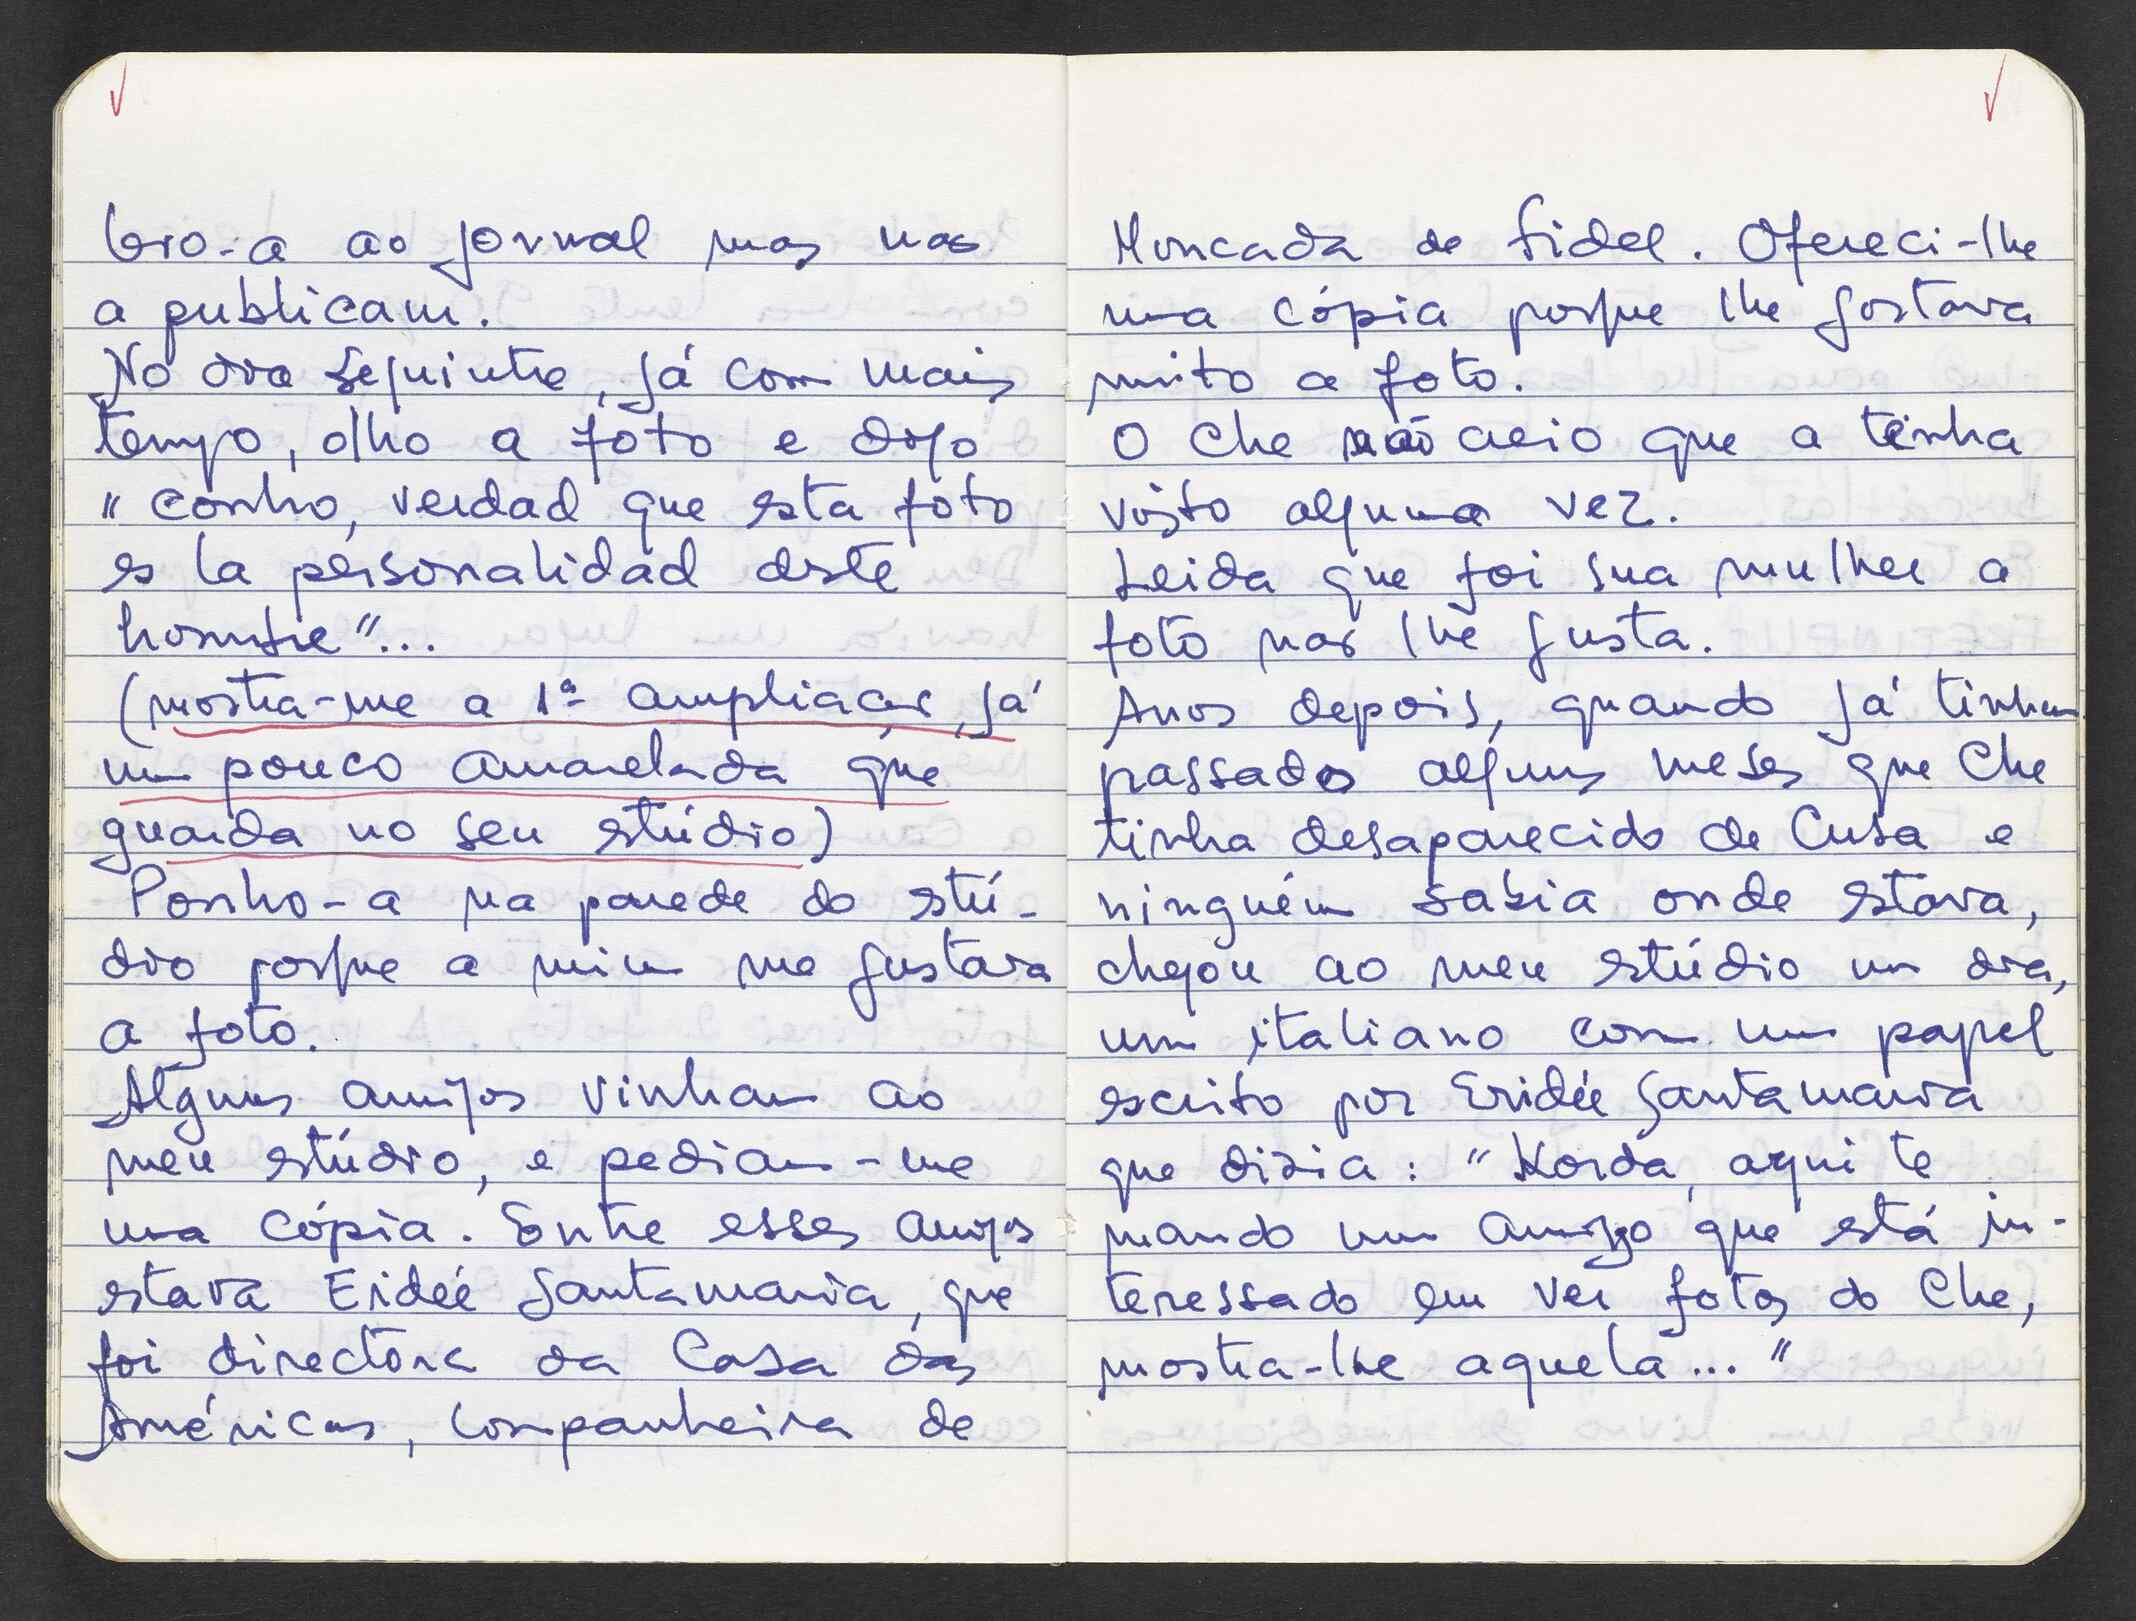 levo-a ao jornal mas nao
a publicam.
No dia seguinte, já com mais
tempo, olho a foto e digo
"conho, verdad que esta foto
es la personalidad deste
hombre"...
(mostra-me a 1ª ampliaçao, já
um pouco amarelada que
guarda no seu stúdio)
Ponho-a na parede do stú-
dio porque a mim me gustava
a foto.
Alguns amigos vinham ao
meu stúdio, e pediam-me
uma cópia. Entre esses amigos
stava Eidée Santamaria, que
foi directora da Casa das
Américas, companheira de
Moncada de Fidel. Ofereci-lhe
uma cópia porque lhe gostava
muito a foto.
O Che não creio que a tenha
visto alguma vez.
Leida que foi sua mulher a
foto nao lhe gusta.
Anos depois, quando já tinham
passados alguns meses que Che
tinha desaparecido de Cuba e
ninguém sabia onde stava,
chegou ao meu stúdio um dia,
um italiano com um papel
escrito por Eridée Santamaria
que dizia: "Korda, aqui te
mando um amigo que está in-
teressado em ver fotos do Che,
mostra-lhe aquela..."